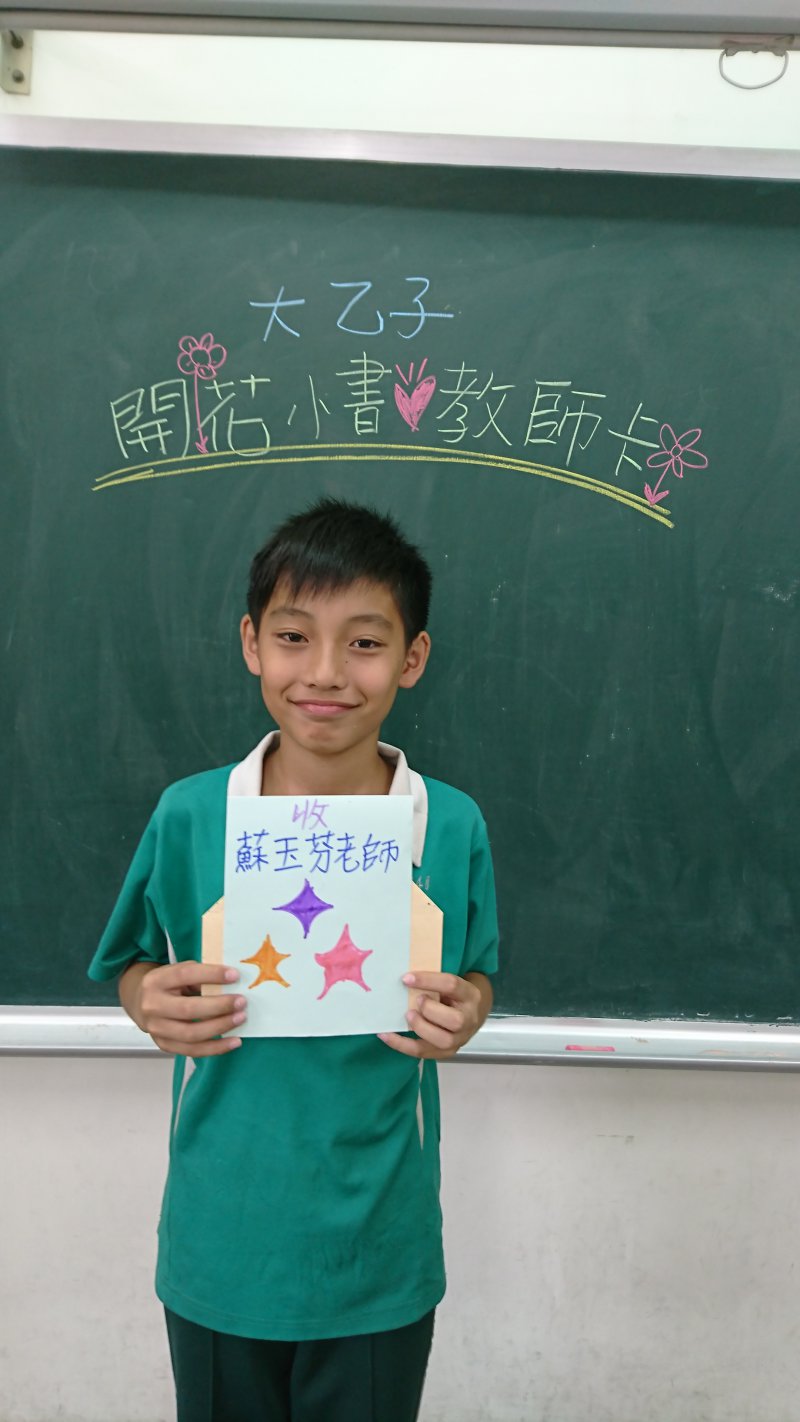 大乙子
開花小書教師卡
收
蘇玉芬老師